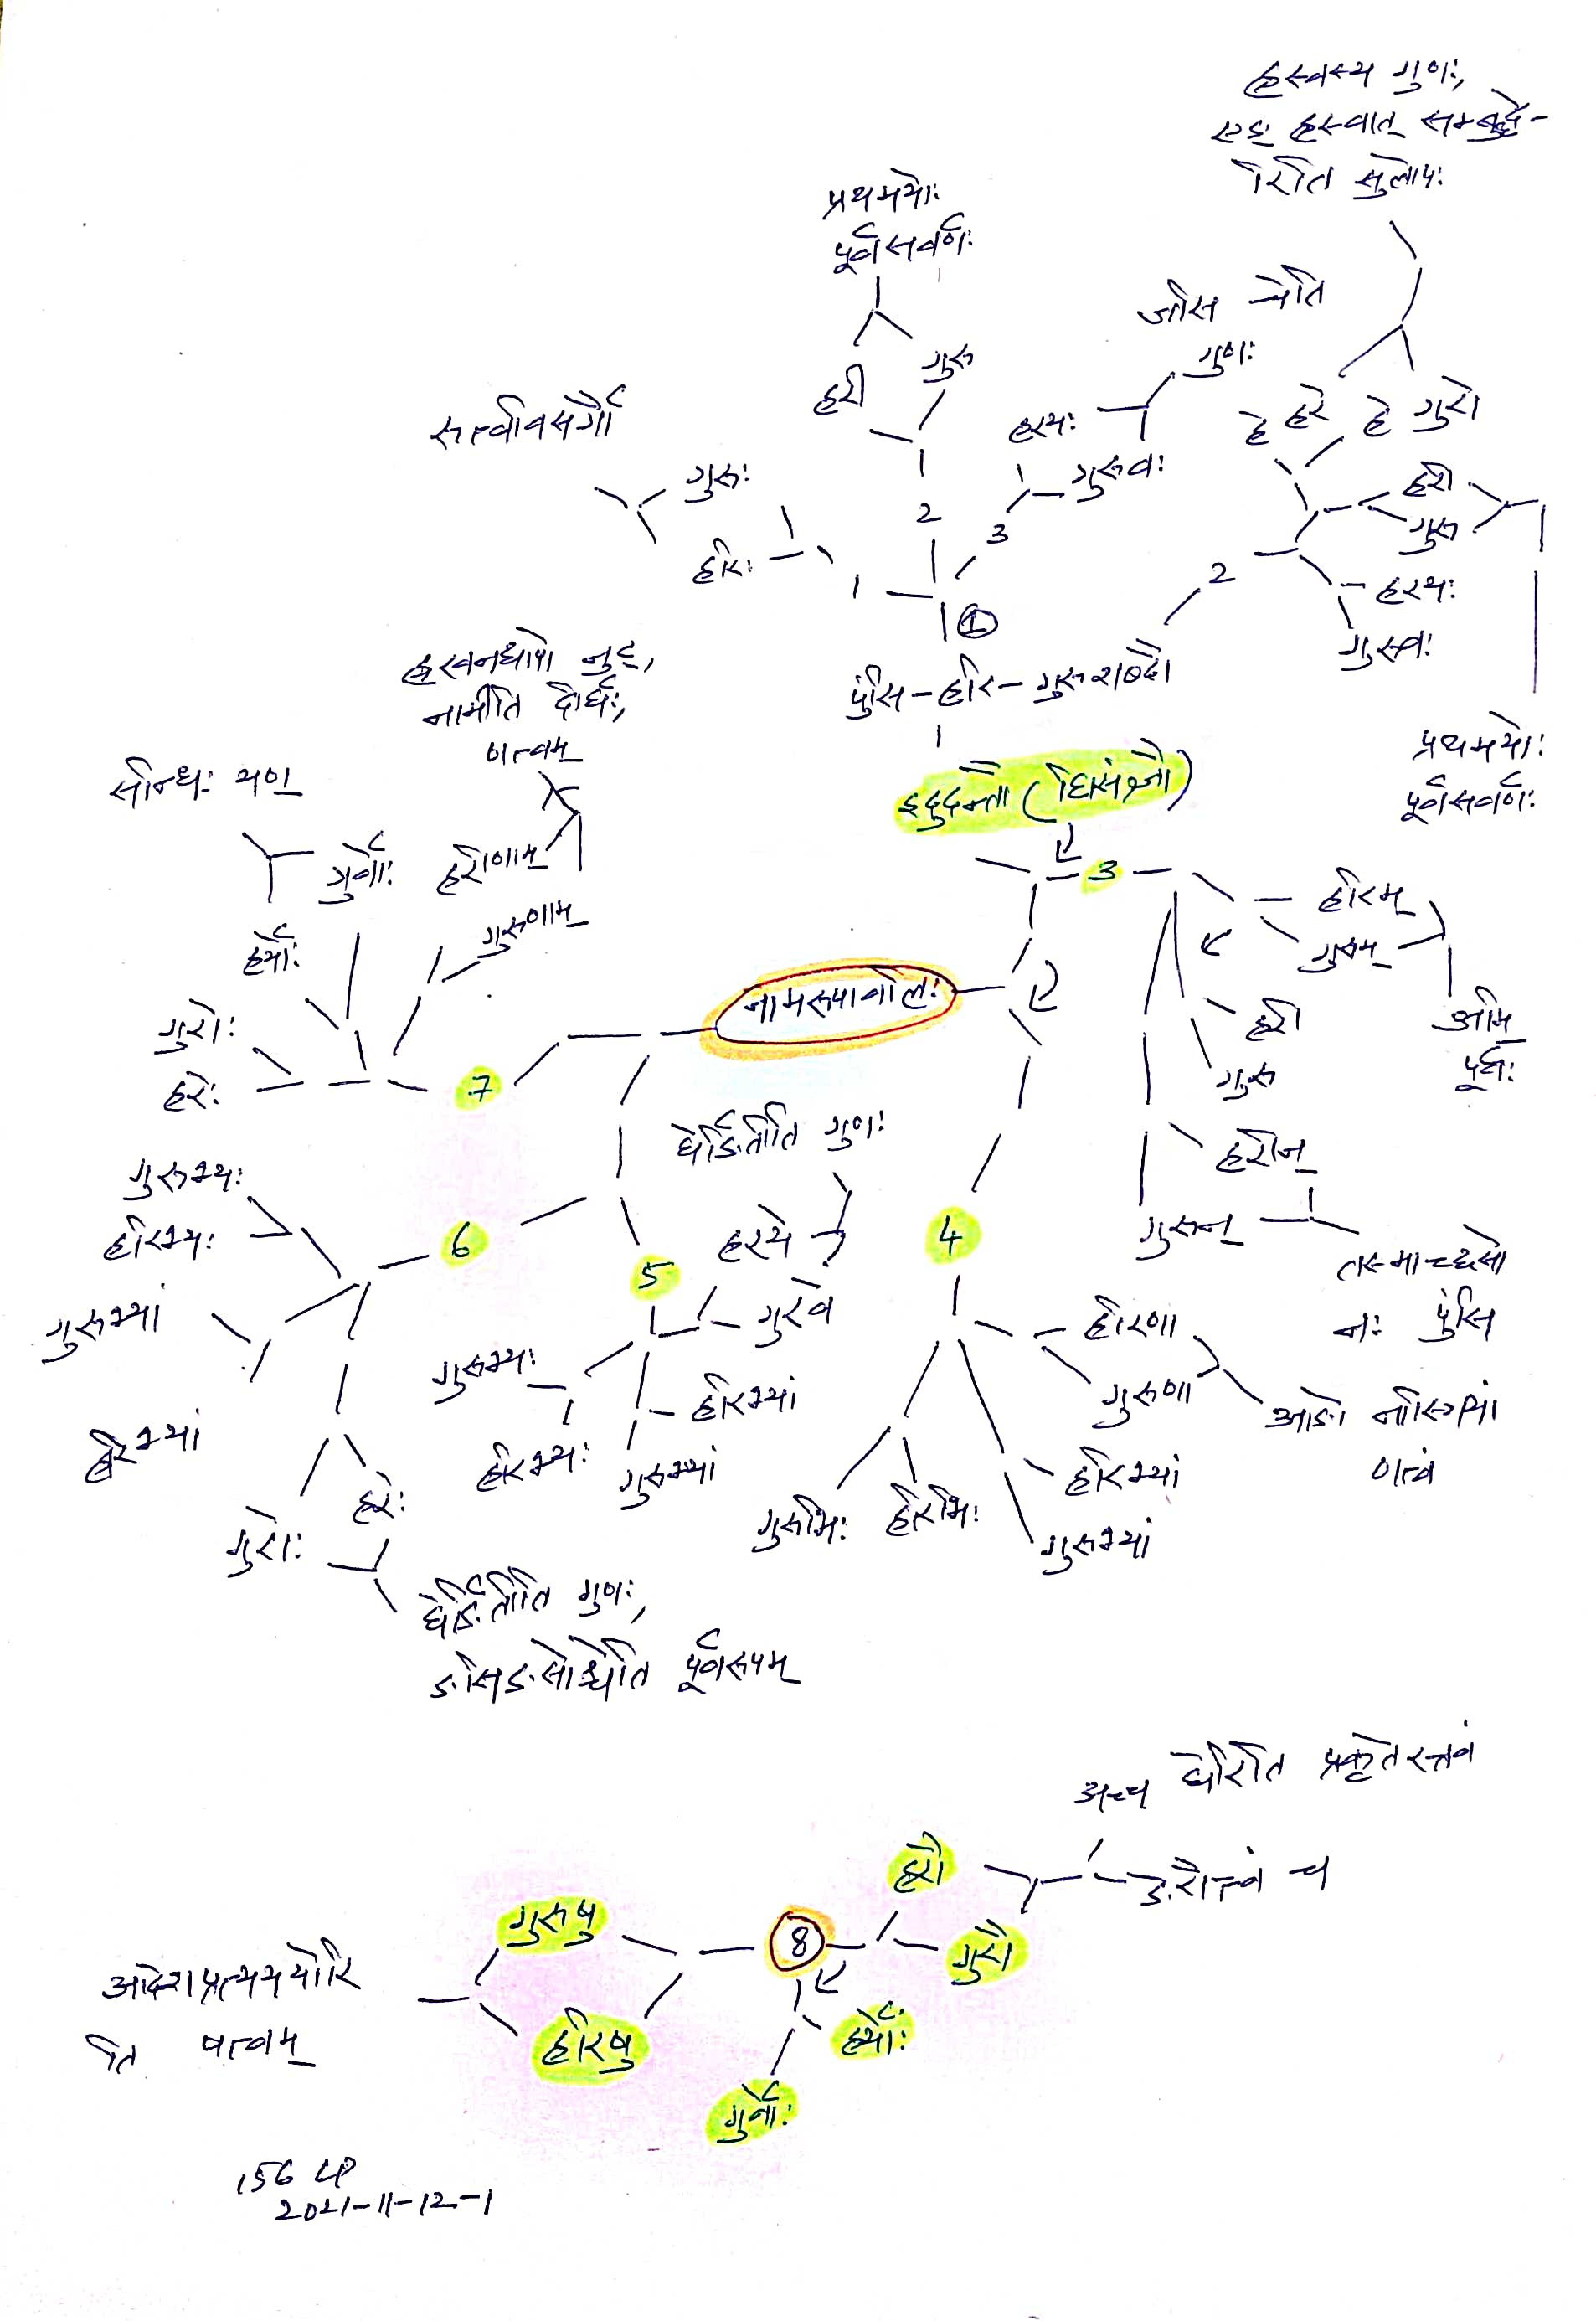 ह्रस्वस्य गुणः,
एङ् ह्रस्वात् सम्बुद्धे-
रिति सुलोपः
प्रथमयोः
पूर्वसवर्णः
जसि चेति
गुणः
हरी
गुरू
रुत्वविसर्गौ
हरयः
हे हरे
हे गुरो
गुरुः
गुरवः
हरी
गुरू
हरिः
1
2
3
2
हरयः
गुरवः
①
ह्रस्वनद्यापो नुट्,
नामीति दीर्घः,
णत्वम्
पुंसि-हरि-गुरुशब्दौ
प्रथमयोः
पूर्वसवर्णः
सन्धिः यण्
इदुदन्तौ (घिसंज्ञौ)
गुर्वोः
हरीणाम्
3
हरिम्
गुरुम्
गुरूणाम्
हर्योः
नामरूपावलिः
गुरोः
हरेः
7
हरी
गुरू
अमि
पूर्वः
घेर्ङितीति गुणः
हरीन्
गुरून्
गुरुभ्यः
हरिभ्यः
6
5
हरये
गुरवे
4
तस्माच्छसो
नः पुंसि
गुरुभ्यां
हरिभ्यां
गुरुभ्यः
हरिभ्यः
हरिभ्यां
गुरुभ्यां
हरिणा
गुरुणा
आङो नास्त्रियां
णत्वं
हरेः
गुरोः
गुरुभिः
हरिभिः
हरिभ्यां
गुरुभ्यां
घेर्ङितीति गुणः,
ङसिङसोश्चेति पूर्वरूपम्
अच्च घेरिति प्रकृतेरत्त्वं
ङेरौत्त्वं च
हरौ
गुरौ
गुरुषु
8
हरिषु
हर्योः
गुर्वोः
आदेशप्रत्यययोरि
ति षत्वम्
156 LP
2021-11-12-1